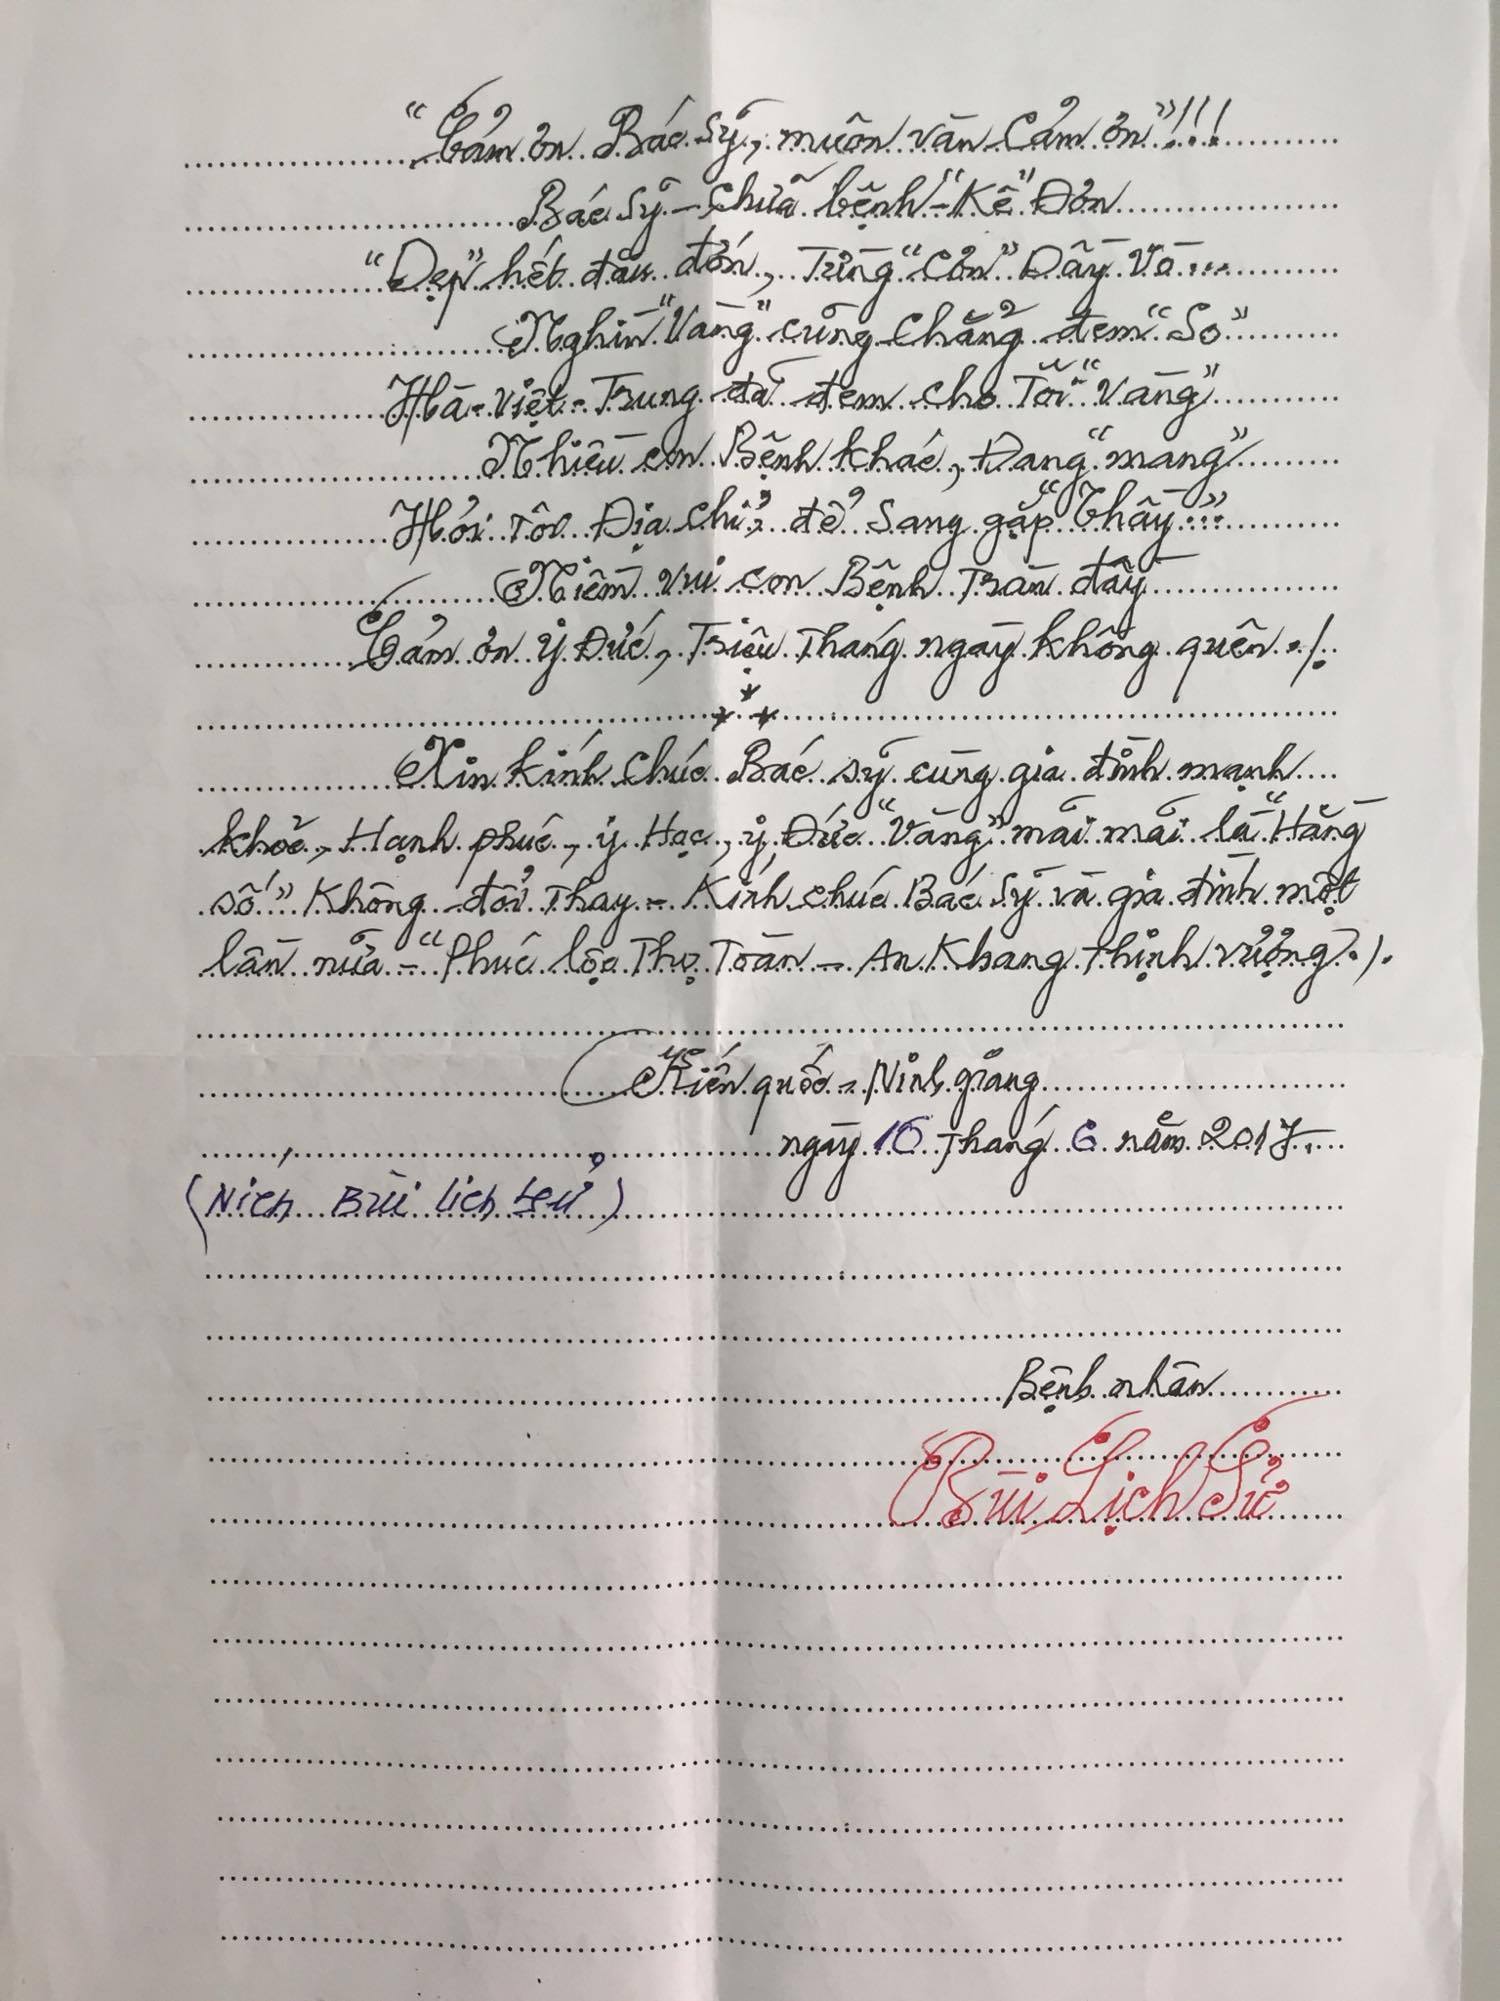 "Cảm ơn Bác sỹ, muôn vàn cảm ơn"!!!
Bác sỹ - chữa bệnh - "Kê" Đơn
"Dẹp" hết đau đớn, Từng "cơn" Dầy Vò...
Nghìn "Vàng" cũng chẳng đem "So"
Hà - Việt - Trung đã đem cho Tôi "Vàng"
Nhiều con Bệnh khác, Đang "mang"
Hỏi Tôi Địa chỉ, để sang gặp "Thầy"!!!
Niềm vui con Bệnh Tràn đầy
Cảm ơn y Đức, Triệu Tháng ngày không quên ./.
Xin kính chúc Bác sỹ cùng gia đình mạnh
khoẻ, Hạnh phúc, y Học, y Đức "Vàng" mãi mãi là "Hằng
số" Không đổi Thay - Kính chúc Bác sỹ và gia đình một
lần nữa - "Phúc lộc Thọ Toàn - An Khang Thịnh vượng ./.
Kiến quốc - Ninh giang
ngày 16 Tháng 6 năm 2017
(Bùi lịch sử)
Bệnh nhân
Bùi Lịch Sử